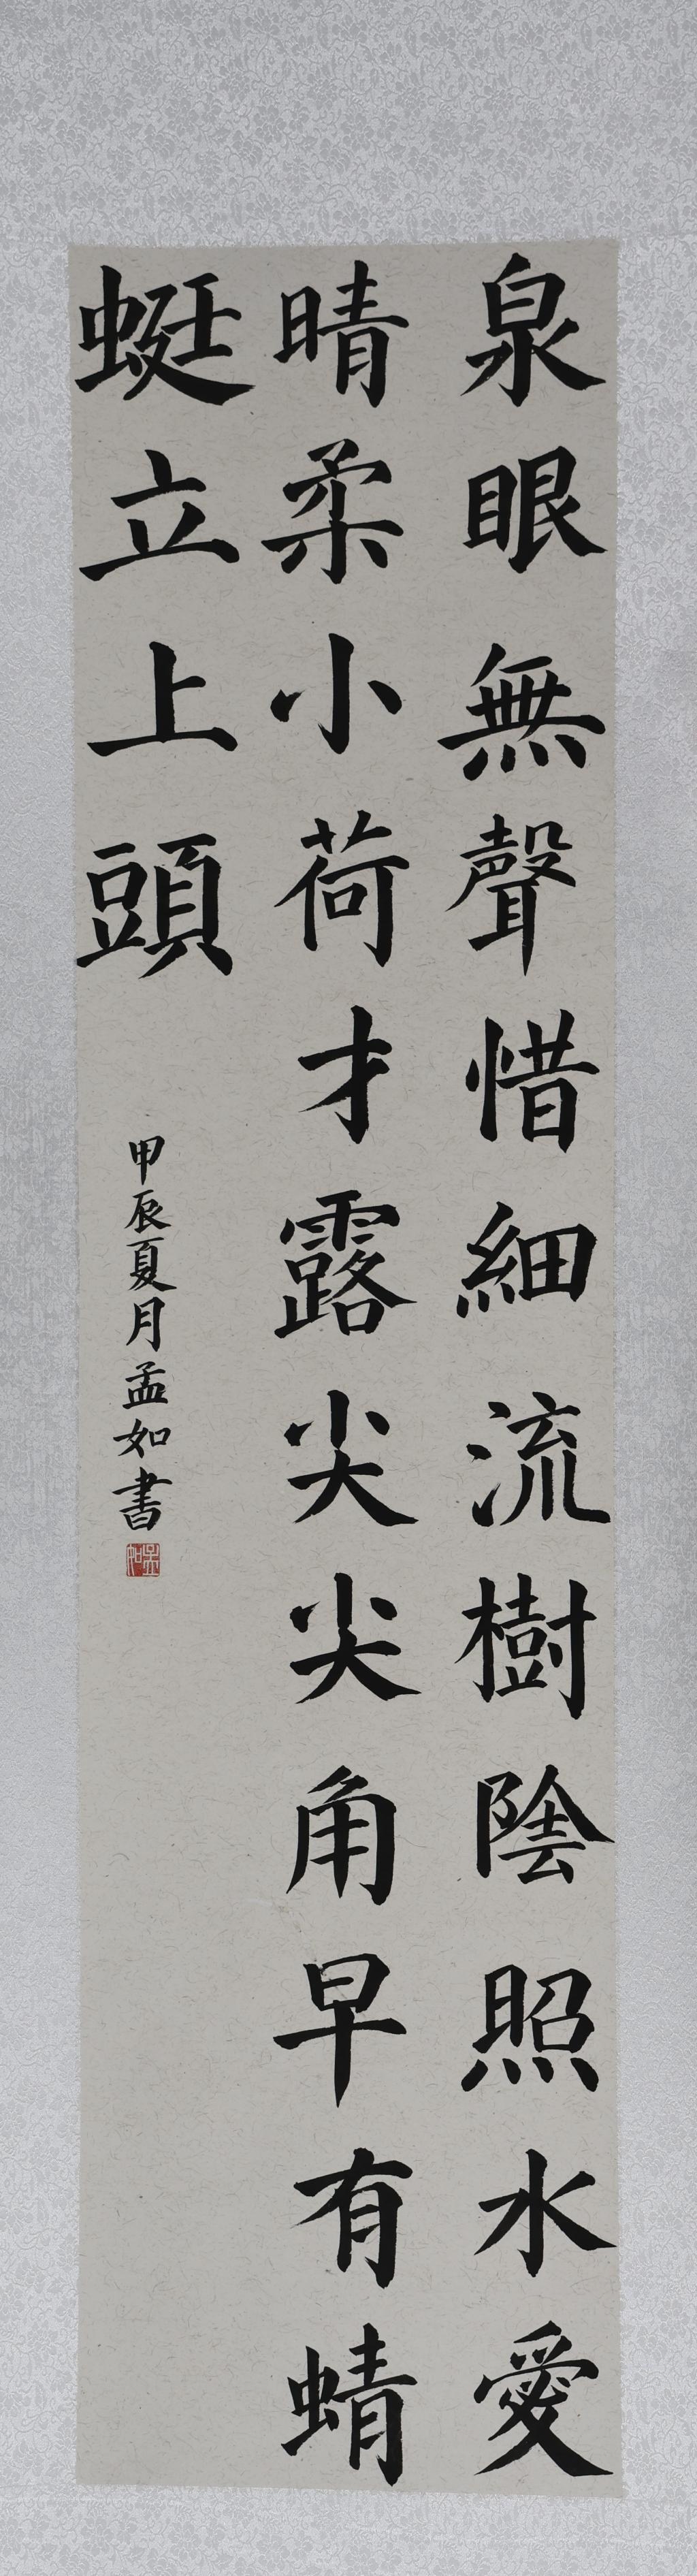 泉眼無聲惜細流樹陰照水愛
晴柔小荷才露尖尖角早有蜻
蜓立上頭
甲辰夏月孟如書
孟如